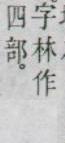 字林作
四部。